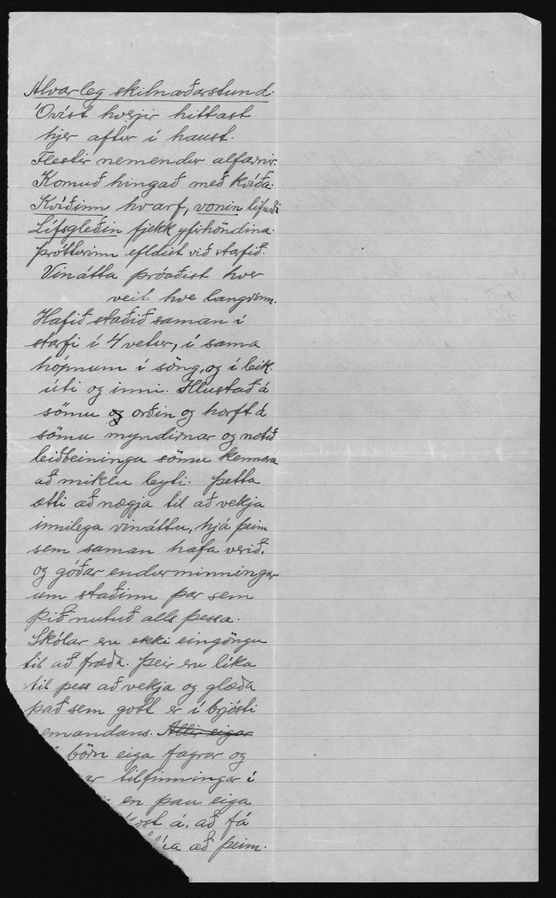 Alvarleg skilnaðarstund.
Óvíst hverjir hittast
hjer aftur í haust.
Flestir nemendur alfarnir.
Komuð hingað með kvíða.
Kvíðinn hvarf, vonin lifnaði
Lífsgleðin fjekk yfirhöndina.
þrótturinn efldist við stafið.
Vinátta þróaðist hver
veit hve langvinn.
Hafið staðið saman í
starfi í 4 vetur, í sama
hópnum í söng, og í leik
úti og inni. Hlustað á
sömu og orðin og horft á
sömu myndirnar og notið
leiðbeininga sömu kennara
að miklu leyti. Þetta
ætti að nægja til að vekja
innilega vináttu, hjá þeim
sem saman hafa verið,
og góðar endurminningar
um staðinn þar sem
þið nutuð alls þessa.
Skólar eru ekki eingöngu
til að fræða. Þeir eru líka
til þess að vekja og glæða
það sem gott er í brjósti
emandans. Allir eigar
börn eiga fagrar og
ar tilfinningar í
en þau eiga
kost á, að fá
að þeim.